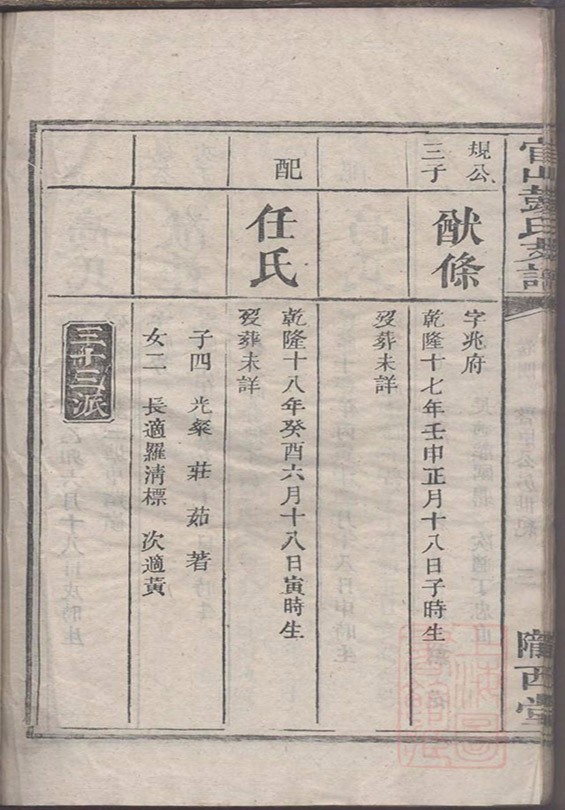 官山彭氏支譜
隴西堂
規公
三子
猷條
字兆府
乾隆十七年壬申正月十八日子時生
歿葬未詳
配
任氏
乾隆十八年癸酉六月十八日寅時生
歿葬未詳
子四 光粲 莊 茹 著
女二 長適羅淸標 次適黃
三十三派